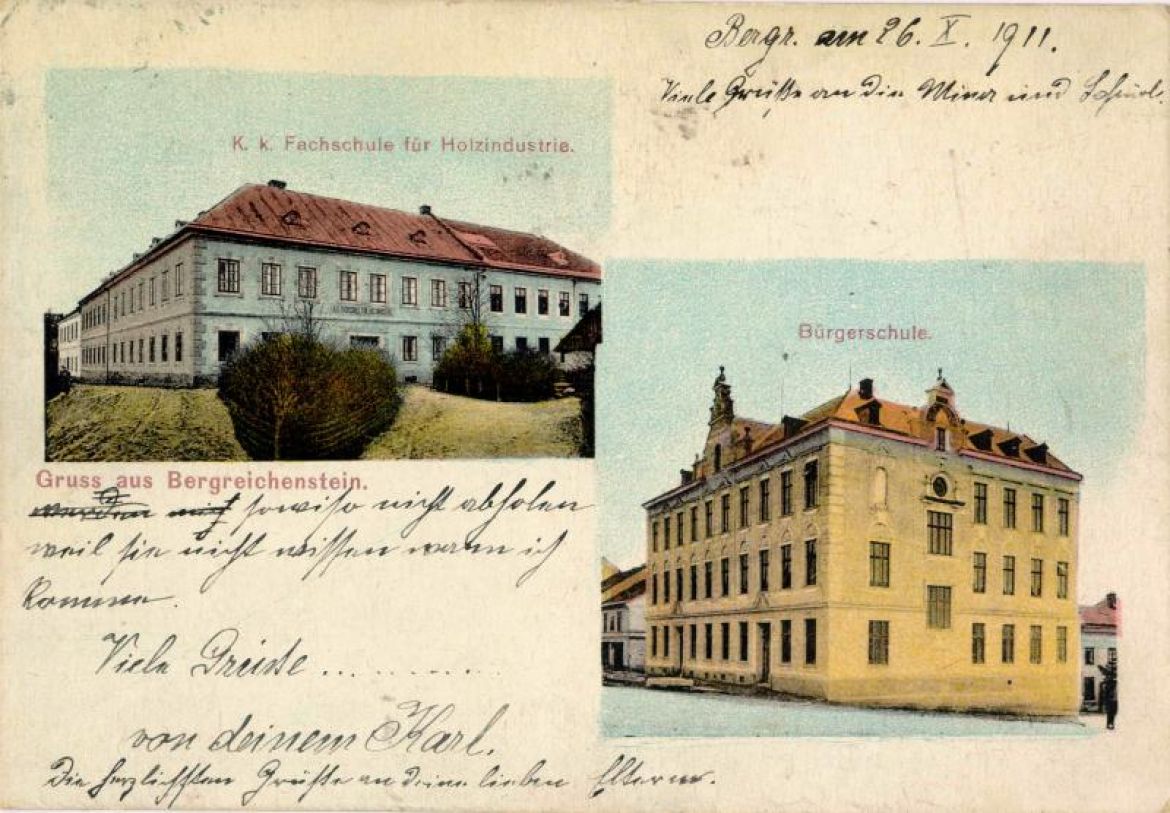 Bergr. am 26. X. 1911.
Viele Grüße an die Mina und
K. k. Fachschule für Holzindustrie.
Bürgerschule.
Gruss aus Bergreichenstein.
sowiso nicht abholen
weil sie nicht wissen wann ich
komme.
Viele Grüsse ..........
von deinem Karl.
Die herzlichsten Grüße an deine lieben Eltern.